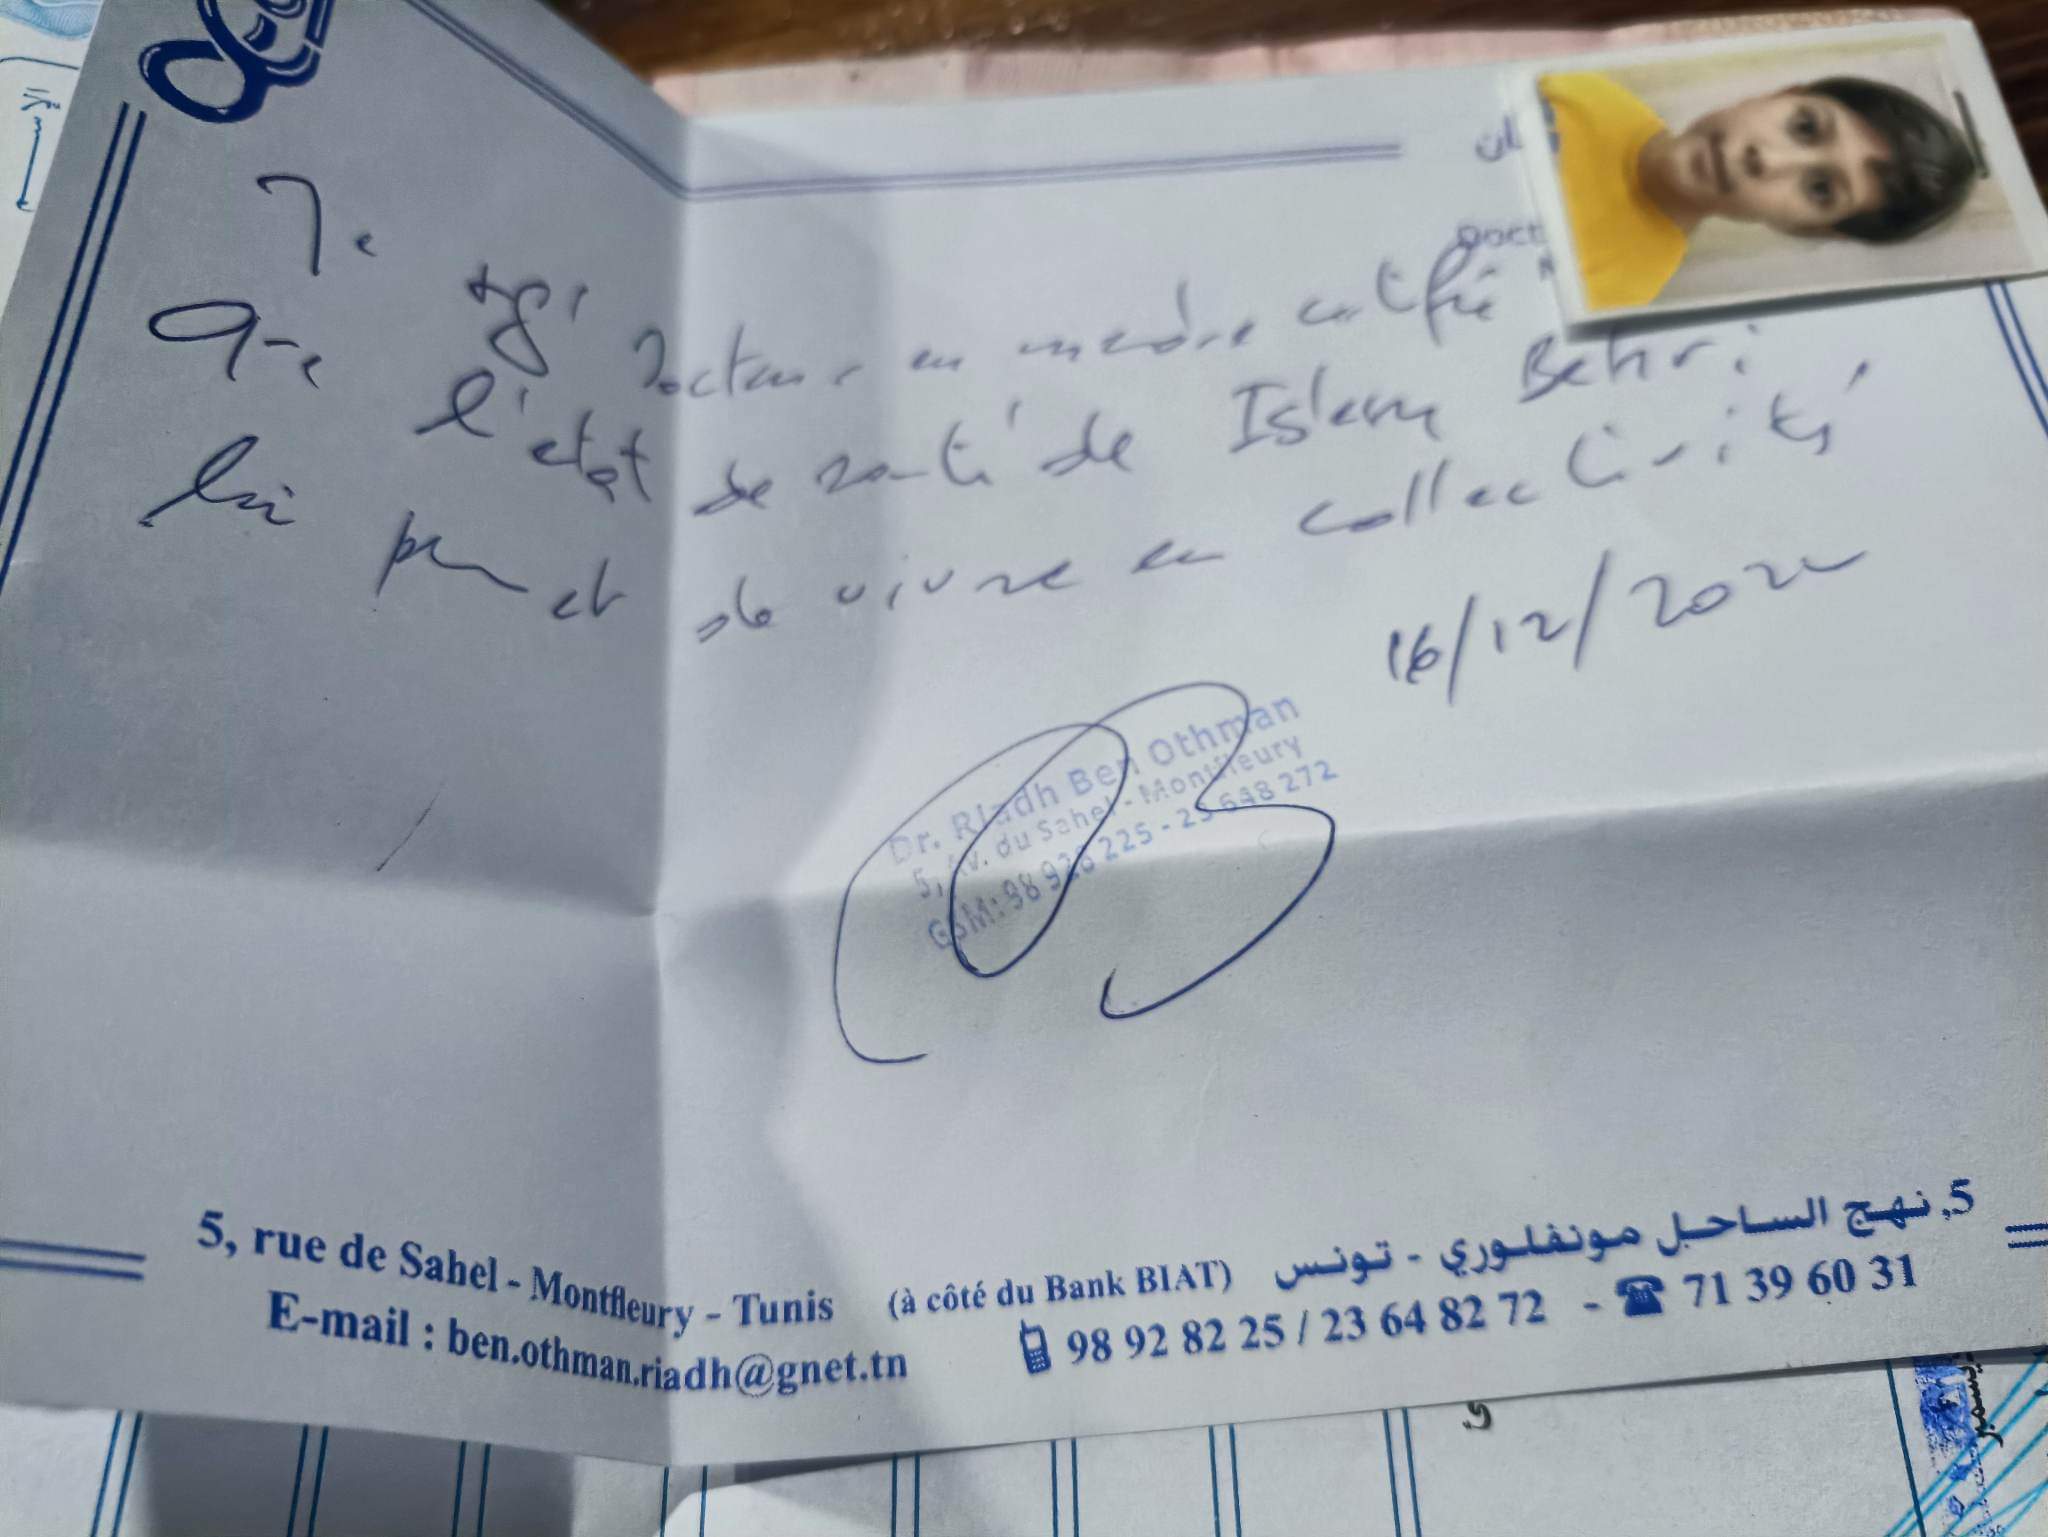 Je ssigné Docteur en médecine certifie
que l'état de santé de Islem Behri
lui permet de vivre en collectivité
16/12/2022
Dr. Riadh Ben Othman
5, Av. du Sahel - Montfleury
GSM: 98 928 225 - 23 648 272
5, rue de Sahel - Montfleury - Tunis (à côté du Bank BIAT) 5, نهج الساحل مونفلوري - تونس
E-mail : ben.othman.riadh@gnet.tn 98 92 82 25 / 23 64 82 72 - 71 39 60 31